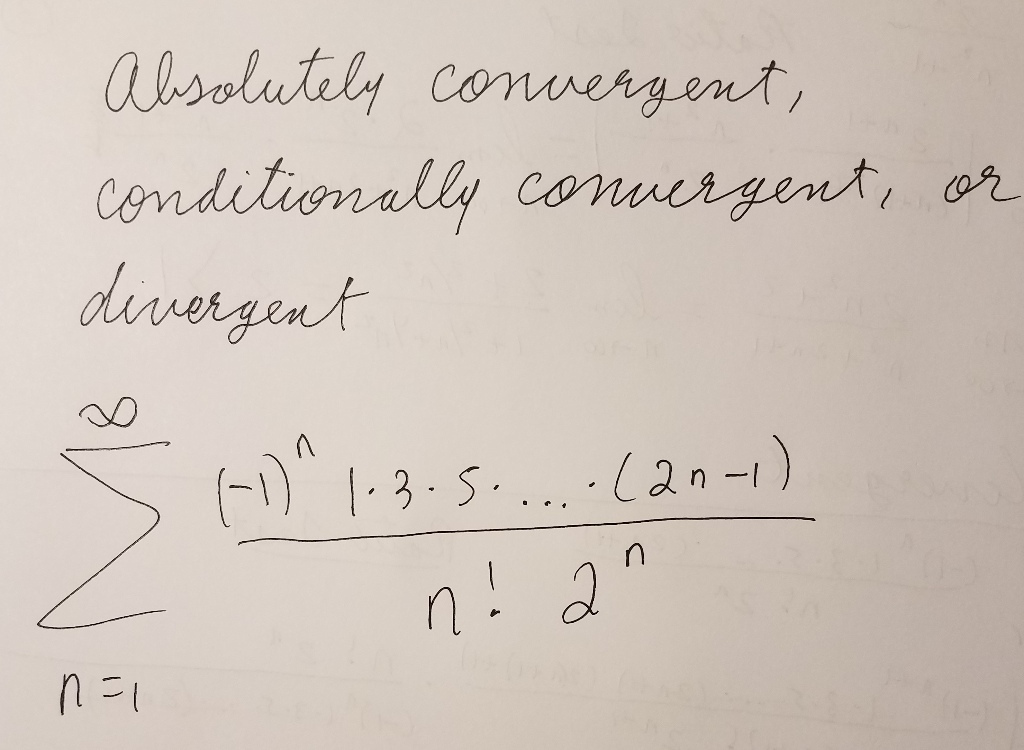 Absolutely convergent,
conditionally convergent, or
divergent
∞
∑ (-1)^n 1·3·5· ... ·(2n-1)
n! 2^n
n=1